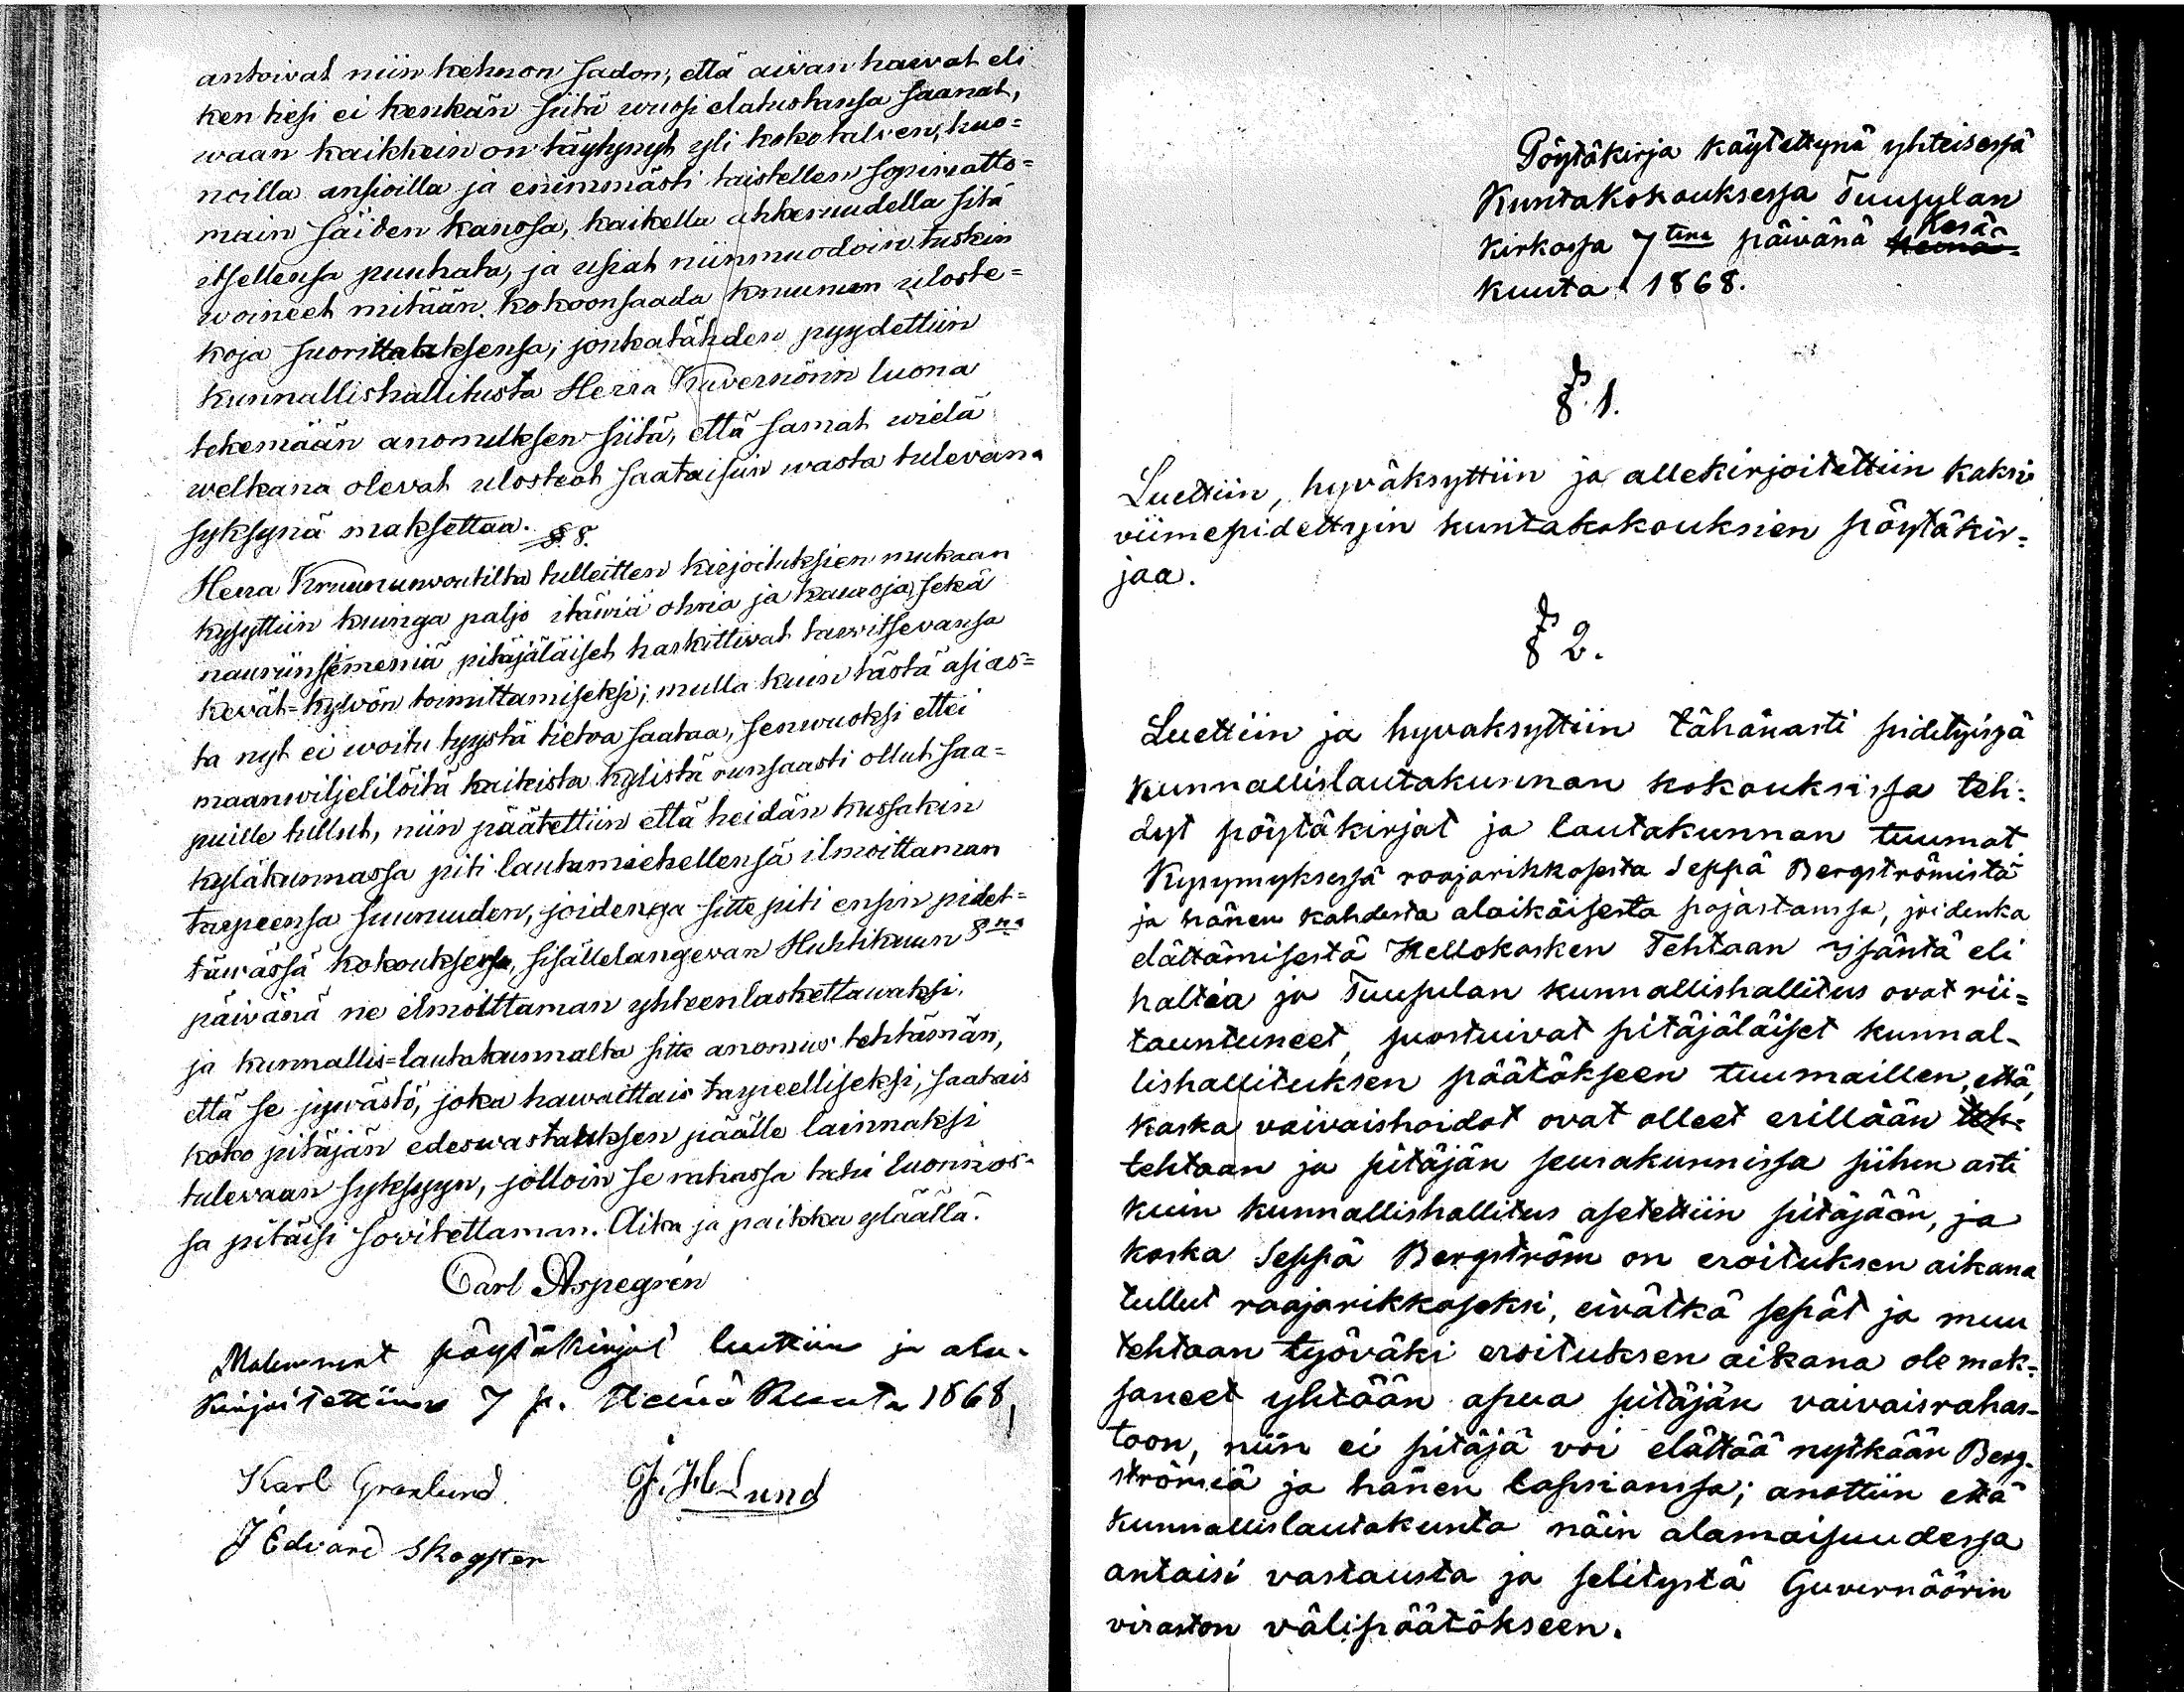 antoivat niin kehnon sadon, että aivan harvat eli
ken tiesi ei kenkän siitä wuosi elatustansa saanat,
waan kaikkein on täytynyt yli koko talven, huo=
noilla ansioilla ja enimmästi taistellen sopimatto=
main säiden kanssa, kaikella ahkeruudella sitä
itsellensa puuhata, ja usiat niinmuodoin tuskin
woineet mitään kokoonsaada kruunun uloste=
koja suorittaaksensa; jonkatähden pyydettiin
Kunnallishallitusta Herra Kuvernönin luona
tekemään anomuksen siitä, että samat wielä
welkana olevat ulosteot saataisiin wasta tulevana
syksynä maksettaa.
§ 8.
Herra Kruununwoutilta tulleitten kirjoituksien mukaan
kysyttiin kuinga paljo itäwiä ohria ja kauroja, sekä
nauriinsiemeniä pitäjäläiset harkittivat tarvitsevansa
kevät=kylvön toimittamiseksi; mutta kuin tästä asias=
ta nyt ei woitu tyystä tietoa saataa, senwuoksi ettei
maanwiljelilöitä kaikista kylistä runsaasti ollut saa=
puille tullut, niin päätettiin että heidän kussakin
kyläkunnassa piti lautamiehellensä ilmoittaman
tarpeensa suuruuden, joidenga sitte piti ensin pidet=
täwässä kokouksessa, sisällelangevan Huhtikuun 8na
päivänä ne ilmoittaman yhteenlaskettawaksi,
ja kunnallis=lautakunnalta sitte anomus tehtämän,
että se jywästö, joka hawaittais tarpeelliseksi, saatais
koko pitäjän edeswastauksen päälle lainnaksi
tulevaan syksyyn, jolloin se rahassa tahi luonnos=
sa pitäisi sovitettaman. Aika ja paikka ylläällä.
Carl Aspegrén
Molemmat pöytäkirjat luettiin ja alle-
kirjoitettiin 7 p. Heinä Kuuta 1868,
Karl Granlund
J. H. Lund
J Edvard Skogster
Pöytäkirja käytettynä yhteisessä
Kuntakokouksessa Tuusulan
Kirkossa 7 tenä päivänä Heinä= Kesä=
kuuta 1868.
§. 1.
Luettiin, hyväksyttiin ja allekirjoitettiin kaksi
viimepidettyin kuntakokouksien pöytäkir=
jaa.
§ 2.
Luettiin ja hyvaksyttiin tähänasti pidetyissä
kunnallislautakunnan kokouksissa teh=
dyt pöytäkirjat ja lautakunnan tuumat.
Kysymyksessä raajarikkosesta Seppä Bergströmistä
ja hänen kahdesta alaikäisesta pojastansa, joidenka
elättämisestä Kellokosken Tehtaan Isäntä eli
haltia ja Tuusulan kunnallishallitus ovat rii=
tauntuneet, suostuivat pitäjäläiset kunnal-
lishallituksen päätökseen tuumaillen, että,
koska vaivaishoidot ovat olleet erillään teh=
tehtaan ja pitäjän seurakunnissa siihen asti
kuin kunnallishallitus asetettiin pitäjään, ja
koska Seppä Bergström on eroituksen aikana
tullut raajarikkoseksi, eivätkä sepät ja muu
tehtaan työväki eroituksen aikana ole mak=
saneet yhtään apua pitäjän vaivaisrahas-
toon, niin ei pitäjä voi elättää nytkään Berg-
strömiä ja hänen lapsiansa; anottiin että
kunnallislautakunta näin alamaisuudessa
antaisi vastausta ja selitystä Guvernöörin
viraston välipäätökseen.